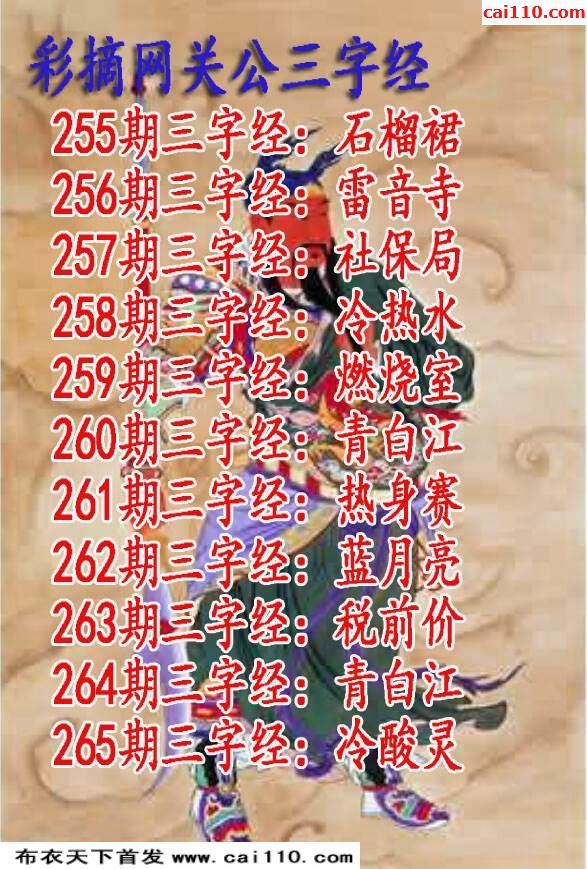 cai110.com
彩摘网关公三字经
255期三字经：石榴裙
256期三字经：雷音寺
257期三字经：社保局
258期三字经：冷热水
259期三字经：燃烧室
260期三字经：青白江
261期三字经：热身赛
262期三字经：蓝月亮
263期三字经：税前价
264期三字经：青白江
265期三字经：冷酸灵
布衣天下首发 www.cai110.com